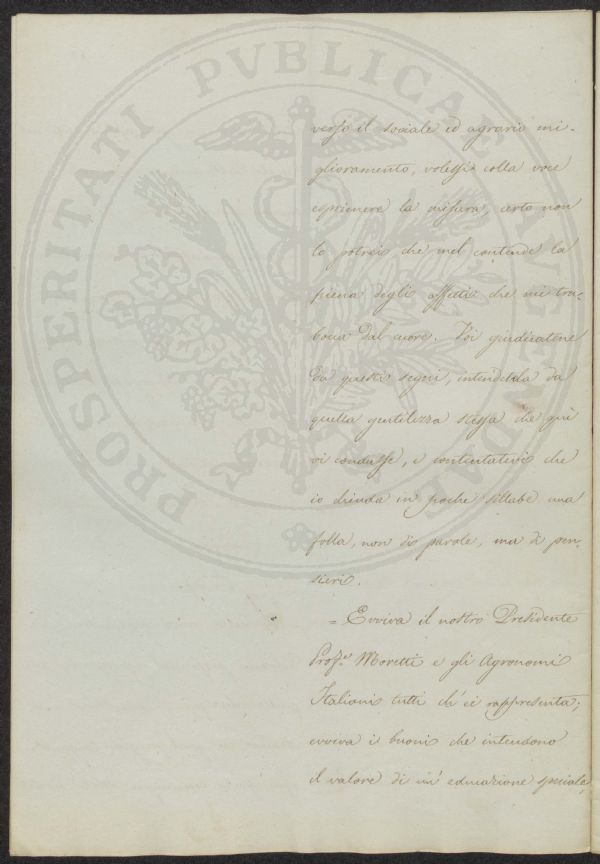 PROSPERITATI PVBLICAE AVGENDAE
verso il sociale ed agrario mi-
glioramento, volessi colla voce
esprimere la misura, certo non
lo potrei che mel contende la
piena degli affetti che mi tra-
bocca dal cuore. Voi giudicatene
da questi segni, intendetela da
quella gentilezza stessa che quì
vi condusse, e contentatevi che
io chiuda in poche sillabe una
folla, non di parole, ma di pen-
sieri.
= Evviva il nostro Presidente
Prof.e Moretti e gli Agronomi
Italiani tutti ch'ei rappresenta;
evviva i buoni che intendono
il valore di un' educazione speciale,